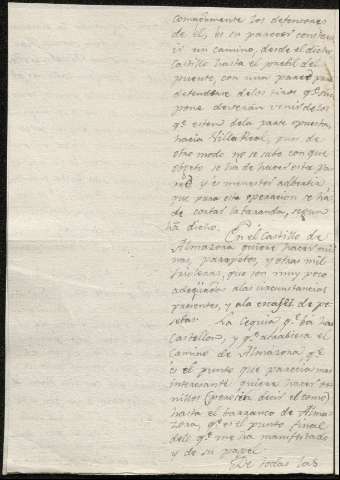 comodamente los defensores
de él, es su parecer constru-
ir un camino, desde el dicho
Castillo hasta el pretil del
puente, con una pared para
defenderse de los tiros qe. su-
pone deverán venir de los
qe. esten de la parte opuesta,
hacia Villa Real, pues de
otro modo no se sabe con que
objeto se ha de hacer esta pa-
red y és menester advertir
que para esta operacion se há
de cortar la baranda, segun
há dicho.
En el Castillo de
Almazora quiere hacer mi-
nas, parapetos, y otras mil
frioleras, que son muy poco
adequadas a las circunstancias
presentes, y a la escasés de pe-
setas. La Cequia qe. bá hacia
Castellon, y qe. atrabiesa el
Camino de Almazora qe.
és el punto que parecia mas
interesante quiere hacer
(
decir el como)
hasta el barranco de Alma-
zora, qe. es el punto final
dels qe. me ha manifestado
y de su papel
De todas las